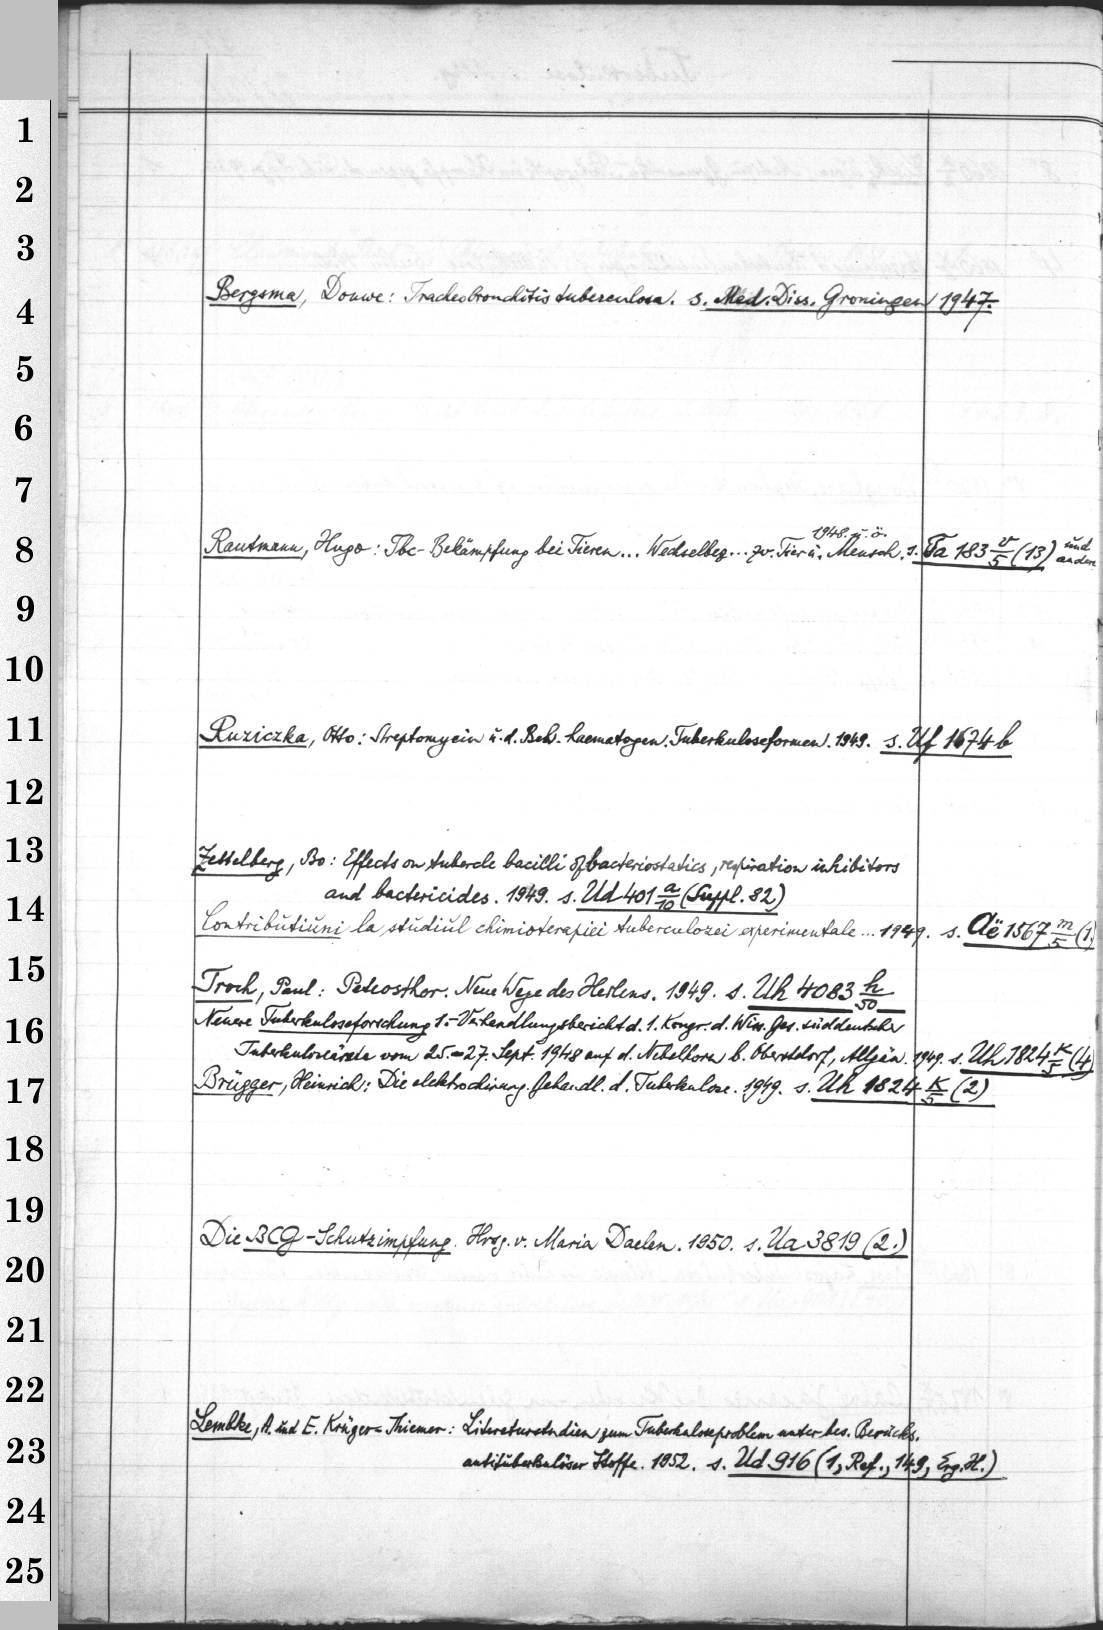 1
2
3
Bergsma, Douwe: Tracheobronchitis tuberculosa. s. Med. Diss. Groningen 1947.
4
5
6
7
1948. u. ö.
8 Rautmann, Hugo: Tbc-Bekämpfung bei Tieren... Wechselbez... zw. Tier u. Mensch. s. Ta 183 v/5 (13) und andere
9
10
11 Ruziczka, Otto: Streptomycin u. d. Beh. haematogen. Tuberkuloseformen. 1949. s. Uf 1674 b
12
13 Zettelberg, Bo: Effects on tubercle bacilli of bacteriostatics, respiration inhibitors
and bactericides. 1949. s. Ud 401 a/10 (Suppl. 82)
14 Contributiuni la studiul chimioterapiei tuberculozei experimentale... 1949. s. Aë 1567 m/5 (1.)
15 Troch, Paul: Peteosthor. Neue Wege des Heilens. 1949. s. Uh 4083 h/50
16 Neuere Tuberkuloseforschung 1. - Verhandlungsbericht d. 1. Kongr. d. Wiss. Ges. süddeutscher
Tuberkuloseärzte vom 25.-27. Sept. 1948 auf d. Nebelhorn b. Oberstdorf, Allgäu. 1949. s. Uh 1824 K/5 (4)
17 Brügger, Heinrich: Die elektrochirurg. Behandl. d. Tuberkulose. 1949. s. Uh 1824 K/5 (2)
18
19
Die BCG-Schutzimpfung. Hrsg. v. Maria Daelen. 1950. s. Ua 3819 (2.)
20
21
22
Lembke, A. und E. Krüger-Thiemer: Literaturstudien zum Tuberkuloseproblem unter bes. Berücks.
23 antituberkulöser Stoffe. 1952. s. Ud 916 (1, Ref., 149, Erg. H.)
24
25